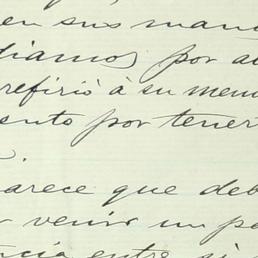 en sus man
diamos por a
refirió á su mem
ento por tener
arece que deb
r venir un pe
ncia entre si